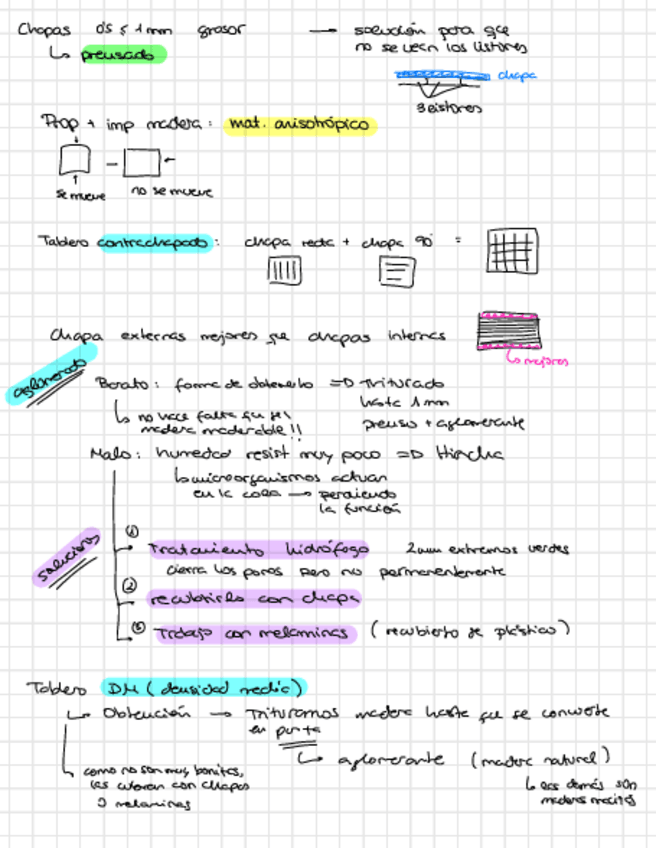 Chapas 0'5 ≤ 1mm grosor → solución para que
no se vean los listones
↳ prensado
chapa
3 listones
Prop + imp madera: mat. anisotrópico
se mueve no se mueve
Tablero contrachapado: chapa recta + chapa 90° =
Chapa externas mejores que chapas internas
↳ mejores
aglomerado
Barato: forma de obtenerlo => Triturado
hasta 1mm
prenso + aglomerante
↳ no hace falta que sea
madera maderable!!
Malo: humedad resist muy poco => Hincha
↳ microorganismos actúan
en la cola → perdiendo
la función
soluciones
① Tratamiento hidrófogo 2mm extremos verdes
cierra los poros pero no permanentemente
② recubrirlo con chapa
③ Trabajo con melaminas (recubierto de plástico)
Tablero DM (densidad media)
↳ Obtención → Trituramos madera hasta que se convierte
en
↳ aglomerante (madera natural)
↳ como no son muy bonitos,
las con chapas
o melaminas
↳ los demás son
madera maciza